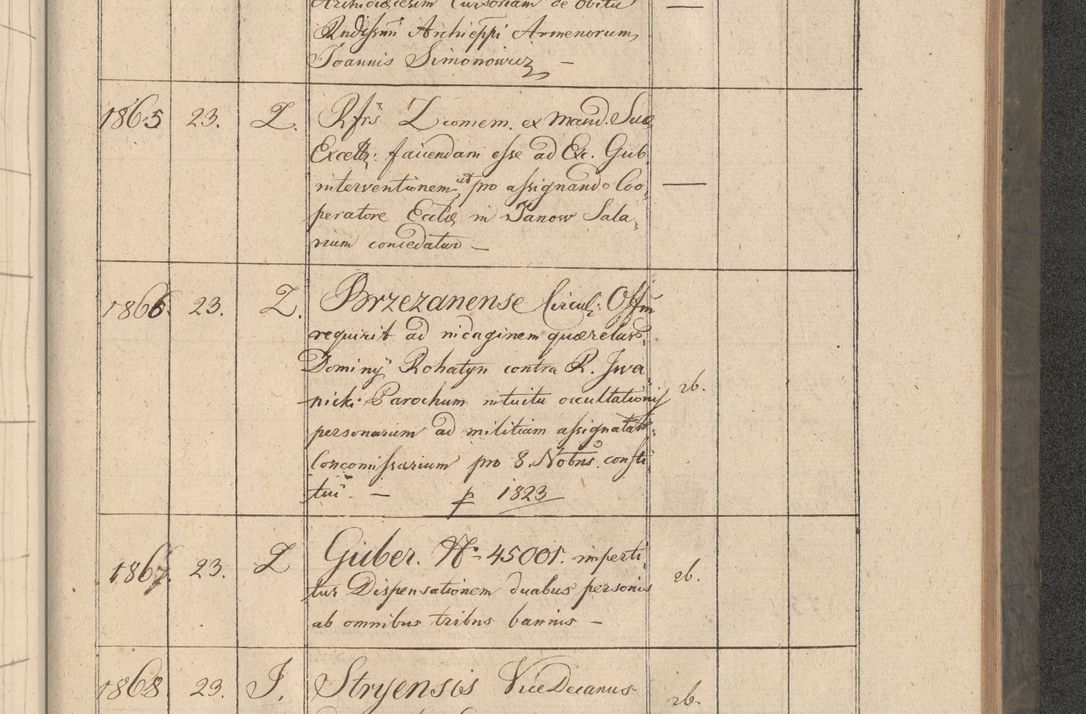 Archidiœcesim Cursoriam de Obitu
Rndissmi Archieppi Armenorum,
Joannis Simonowicz —
1865 23. L. Rfrs L comem. ex Mand. Suæ
Excell: faciendam esse ad Exc. Gub.
interventionem, ut pro assignando Coo,
peratore Ecclæ in Janow Sala,
rium concedatur —
1866. 23. L. Brzezanense Circul: Offm
requirit ad indaginem quærelar.
Dominÿ Rohatyn contra R. Jwa,
nicki Parochum intuitu occultationis
personarum ad militiam assignatar:
Concomissarium pro 8. Nobris consti
tui. — p 1823
rb.
1867. 23. L Guber. N– 45001. imperti,
tur Dispensationem duabus personis
ab omnibus tribus bannis –
rb.
1868. 23. J. Stryensis ViceDecanus
rb.